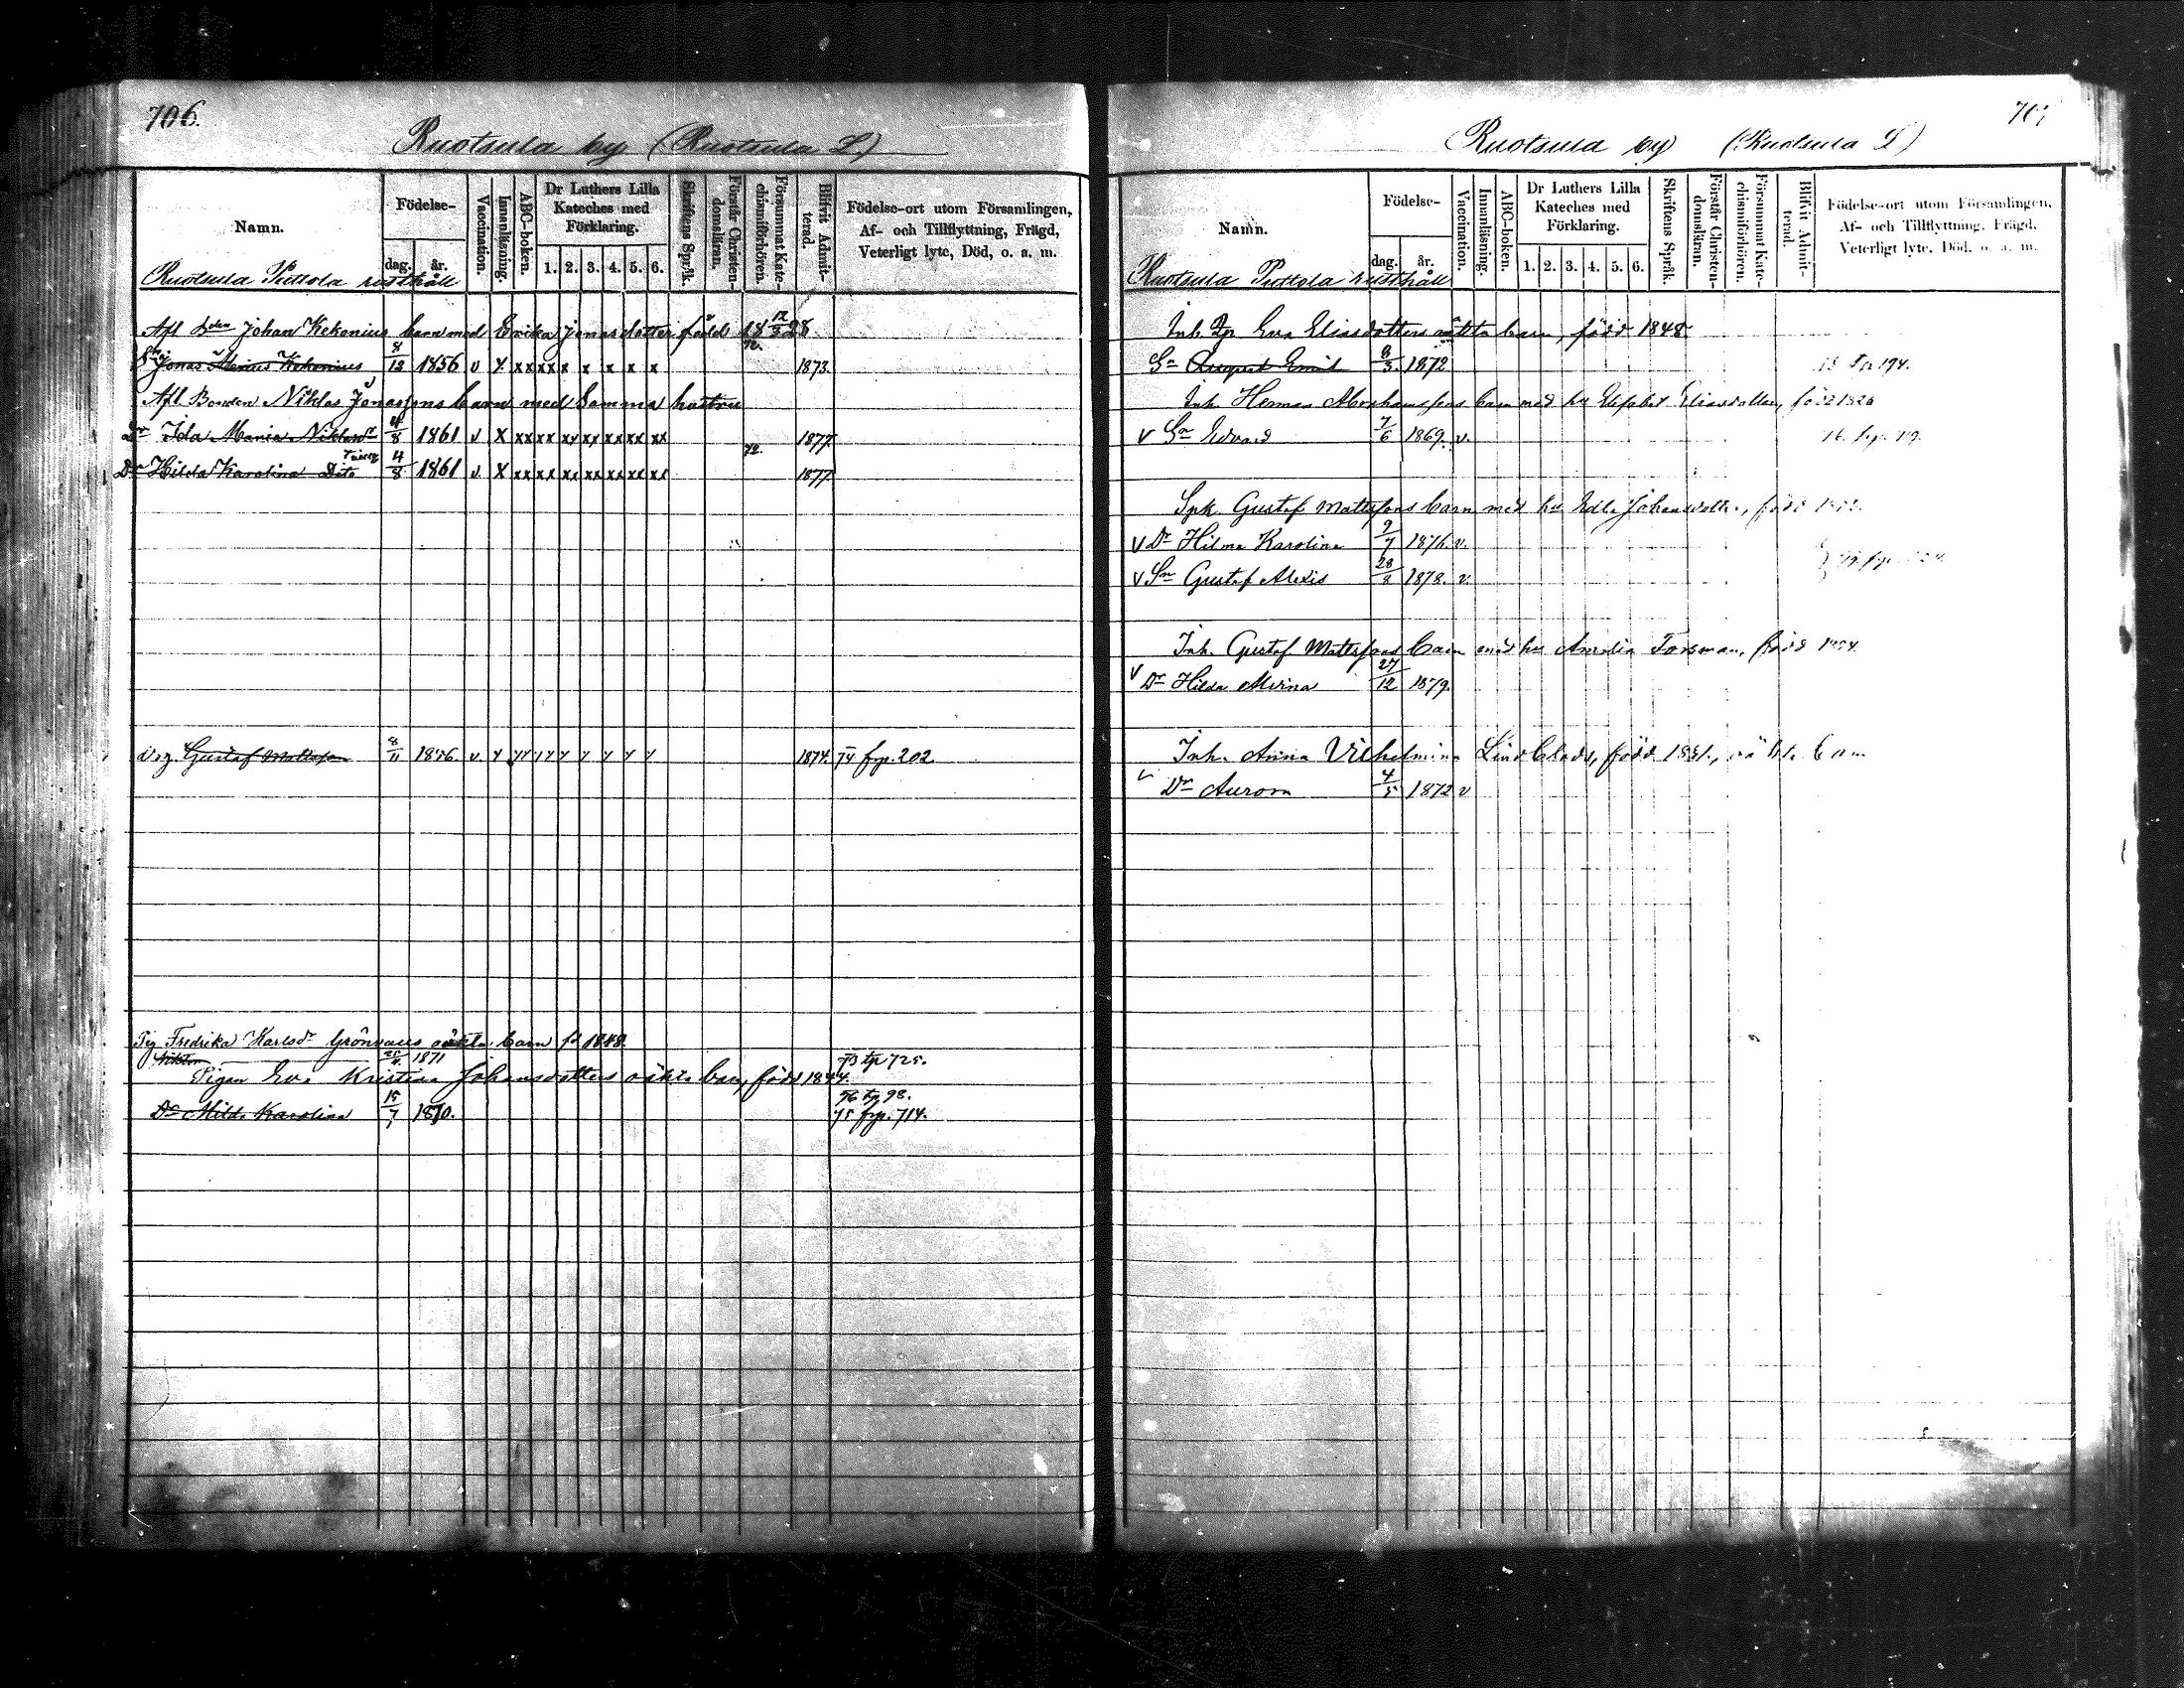 706.
Ruotsula by (Ruotsula L)
Namn.
Födelse-
dag.
år.
Vaccination.
Innanläsning.
ABC-boken.
Dr Luthers Lilla Kateches med Förklaring.
1. 2. 3. 4. 5. 6.
Skriftens Språk.
Förstår Christen-domsläran.
Försummat Kate-chismiförhören.
Blifvit Admit-terad.
Födelse-ort utom Församlingen, Af- och Tillflyttning, Frägd, Veterligt lyte, Död, o. a. m.
Ruotsula Puttola rusthåll
Afl. Bden Johan Kekonius barn med Erika Jonasdotter född 18 12/3 28.
Jonas Kekonius 8/12 1856 v X xx xx x x x x x 72. 1873.
Afl. Bonden Niklas Jonassons barn med samma hustru
Dr Ida Maria Niklasdr 4/8 1861 v X xx xx xx xx xx xx xx 1877.
Dr Hilda Karolina Dito 4/8 1861 v. X xx xx xx xx xx xx xx 72. 1877.
Drg. Gustaf Mattsson 8/11 1856. v. y yy yy y y y y y 1874. 74 frp. 202.
Pig Fredrika Karlsdr Grönroos oäkta barn f. 1848.
Viktor 1871 73 tp 725.
Pigan Eva Kristina Johansdotters oäkta barn, född 1844.
76 tp 98.
Dr Milda Karolina 15/7 1870. 75 frp. 714.
Ruotsula by (Ruotsula L)
Namn.
Födelse-
dag.
år.
Vaccination.
Innanläsning.
ABC-boken.
Dr Luthers Lilla Kateches med Förklaring.
1. 2. 3. 4. 5. 6.
Skriftens Språk.
Förstår Christen-domsläran.
Försummat Kate-chismiförhören.
Blifvit Admit-terad.
Födelse-ort utom Församlingen, Af- och Tillflyttning, Frägd, Veterligt lyte, Död, o. a. m.
Ruotsula Puttola rusthåll
Inh. Eva Eliasdotters oäkta barn, född 1848
Sn August Emil 8/3 1872
Inh. Herman Abrahamssons barn med hu Elisabet Eliasdotter, född 1826
v Sn Edvard 7/6 1869. v.
Spk. Gustaf Mattssons barn med hu Edla Johansdotter, född
v Dr Hilma Karolina 9/7 1876. v.
v Sn Gustaf Alexis 28/8 1878. v.
Inh. Gustaf Mattssons barn med hu Amalia Forsman, född 1854.
v Dr Hilda Alvina 27/12 1879.
Inh. Anna Vilhelmina Lindblads, född oäkta barn
v Dr Aurora 4/5 1872 v